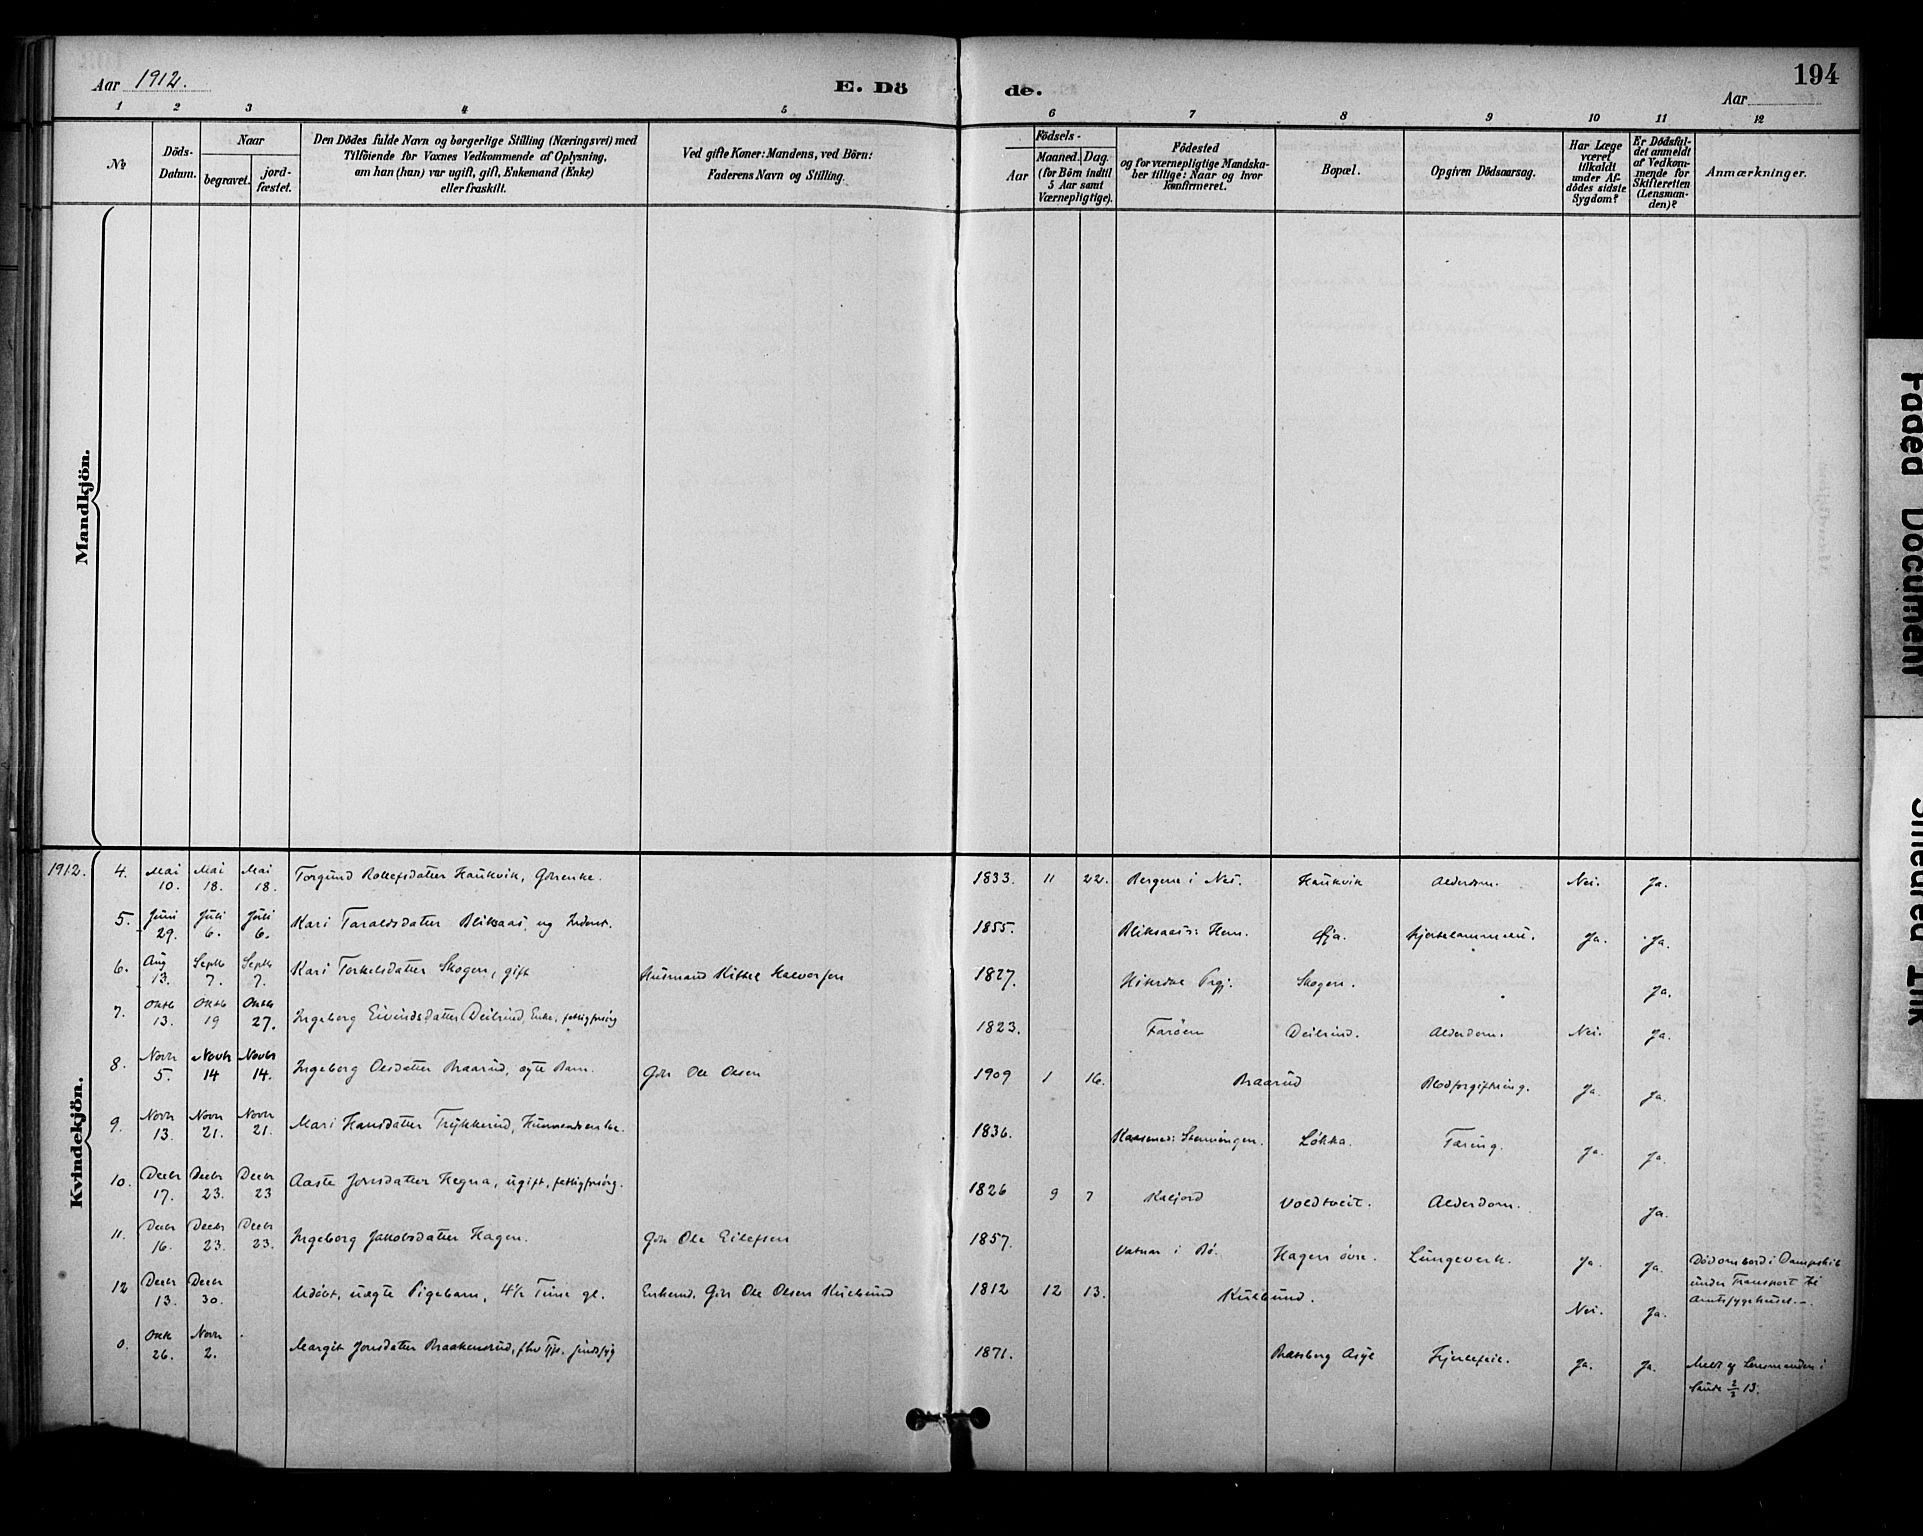 Aar 1912.
E. Dö
de.
194
Aar
1 2 3 4 5 6 7 8 9 10 11 12
No.
Döds-
Datum.
Naar
begravet.
jord-
fæstet.
Den Dödes fulde Navn og borgerlige Stilling (Næringsvei) med
Tilföiende for Voxnes Vedkommende af Oplysning,
om han (hun) var ugift, gift, Enkemand (Enke)
eller fraskilt.
Ved gifte Koner: Mandens, ved Börn:
Faderens Navn og Stilling.
Födsels-
Aar
Maaned. Dag.
(for Börn indtil
5 Aar samt
Værnepligtige).
Födested
og for værnepligtige Mandska-
ber tillige: Naar og hvor
konfirmeret.
Bopæl.
Opgiven Dödsaarsag.
Har Læge
været
tilkaldt
under Af-
dödes sidste
Sygdom?
Er Dödsfal-
det anmeldt
af Vedkom-
mende for
Skifteretten
(Lensman-
den)?
Anmærkninger.
Mandkjön.
Kvindekjön.
1912. 4. Mai 10. Mai 18. Mai 18. Torgund Rollefsdatter Haukvik, Gbrenke. 1833. 11 22. Bergene i Nes. Haukvik Alderdom. Nei. Ja.
5. Juni 29. Juli 6. Juli 6. Kari Taraldsdatter Bliksaas, ug Inderst. 1855. Bliksaas i Hem. Øja. Hjertelammelse. Ja. Ja.
6. Aug 13. Septb 7. Septb 7. Kari Torkelsdatter Skogen, gift Husmand Kittel Halvorsen 1827. Hiterdal Prgj. Skogen. Ja.
7. Oktb 13. Oktb 19 Oktb 27. Ingeborg Eivindsdatter Deilrind, Enke, fattigforsörg 1823. Faröen Deilrind. Alderdom. Nei. Ja.
8. Novbr 5. Novbr 14 Novbr 14. Ingeborg Olsdatter Braarud, ægte Barn. Gbr Ole Olsen 1909 1 16. Braarud Blodforgiftning. Ja. Ja.
9. Novbr 13. Novbr 21. Novbr 21. Mari Hansdatter Trykkerud, Husmandsenke. 1836. Løkka. Tæring. Ja. Ja.
10. Decbr 17. Decbr 23. Decbr 23 Aaste Jonsdatter Hegna, ugift, fattigforsörg. 1826 9 7 Voldtveit. Alderdom. Ja.
11. Decbr 16. Decbr 23. Decbr 23. Ingeborg Jakobsdatter Hagen. Gbr Ole Eilefsen 1857. Vatnar i Bø. Hagen øvre. Lungeverk. Ja. Ja. Död ombord i Dampskib
under Transport til
Amtssygehuset. –
12 Decbr 13. Decbr 30. Udöbt, uægte Pigebarn, 4½ Time gl. Enkemd. Gbr Ole Olsen Kulbund 1812 12 13. Kulbund. Nei. Ja.
0. Oktb 26. Novbr 2. Margit Jonsdatter Braakensrud, fhv Tjp. sindssyg 1871. Bratsberg Asyl Hjertefeil. Ja. Ja. Meldt af Lensmanden i
Saude 2/3 13.
Faded Document
Smeared Ink